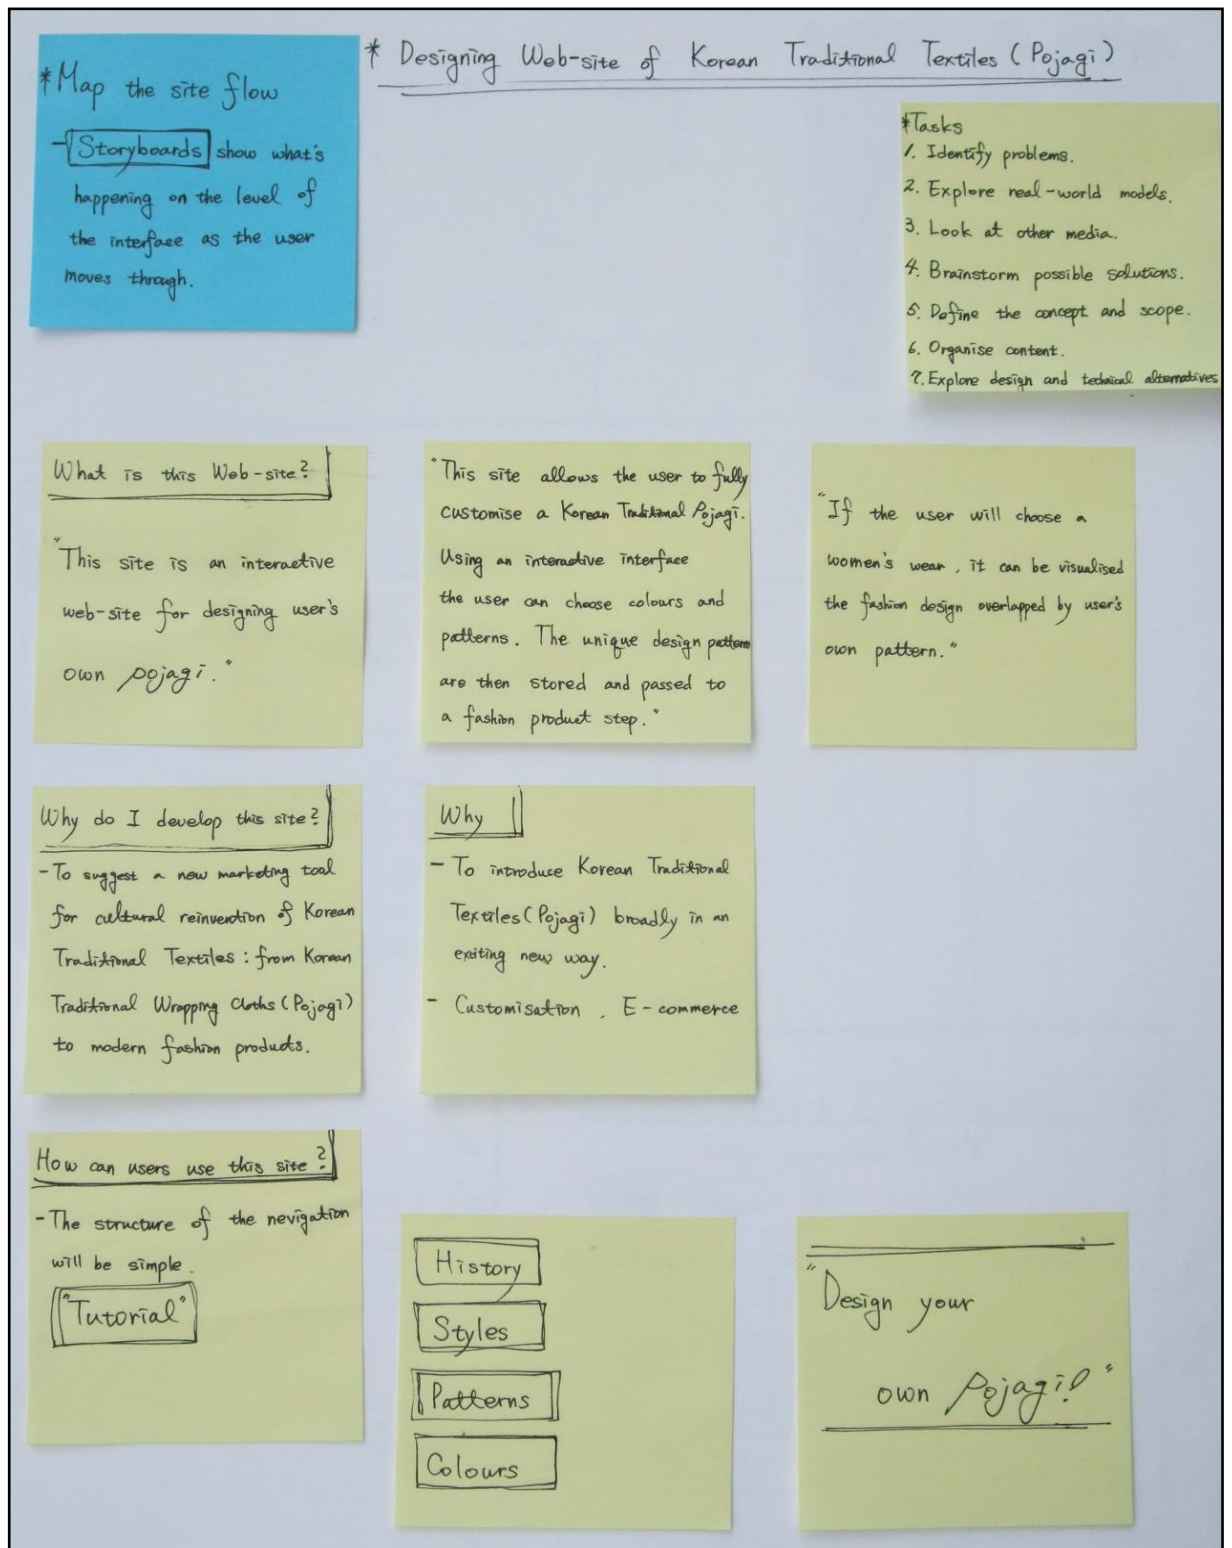 * Designing Web-site of Korean Traditional Textiles (Pojagi)
*Map the site flow
- Storyboards show what's
happening on the level of
the interface as the user
moves through.
*Tasks
1. Identify problems.
2. Explore real-world models.
3. Look at other media.
4. Brainstorm possible solutions.
5. Define the concept and scope.
6. Organise content.
7. Explore design and technical alternatives
What is this Web-site?
"This site is an interactive
web-site for designing user's
own pojagi."
"This site allows the user to fully
customise a Korean Traditional Pojagi.
Using an interactive interface
the user can choose colours and
patterns. The unique design pattern
are then stored and passed to
a fashion product step."
"If the user will choose a
women's wear, it can be visualised
the fashion design overlapped by user's
own pattern."
Why do I develop this site?
- To suggest a new marketing tool
for cultural reinvention of Korean
Traditional Textiles : from Korean
Traditional Wrapping Cloths (Pojagi)
to modern fashion products.
Why
- To introduce Korean Traditional
Textiles (Pojagi) broadly in an
exiting new way.
- Customisation, E-commerce
How can users use this site?
- The structure of the nevigation
will be simple.
"Tutorial"
History
Styles
Patterns
Colours
"Design your
own Pojagi!"